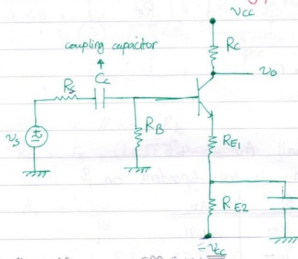 VCC
coupling capacitor
RC
Rs
CC
vo
vs
RB
RE1
RE2
-VCC